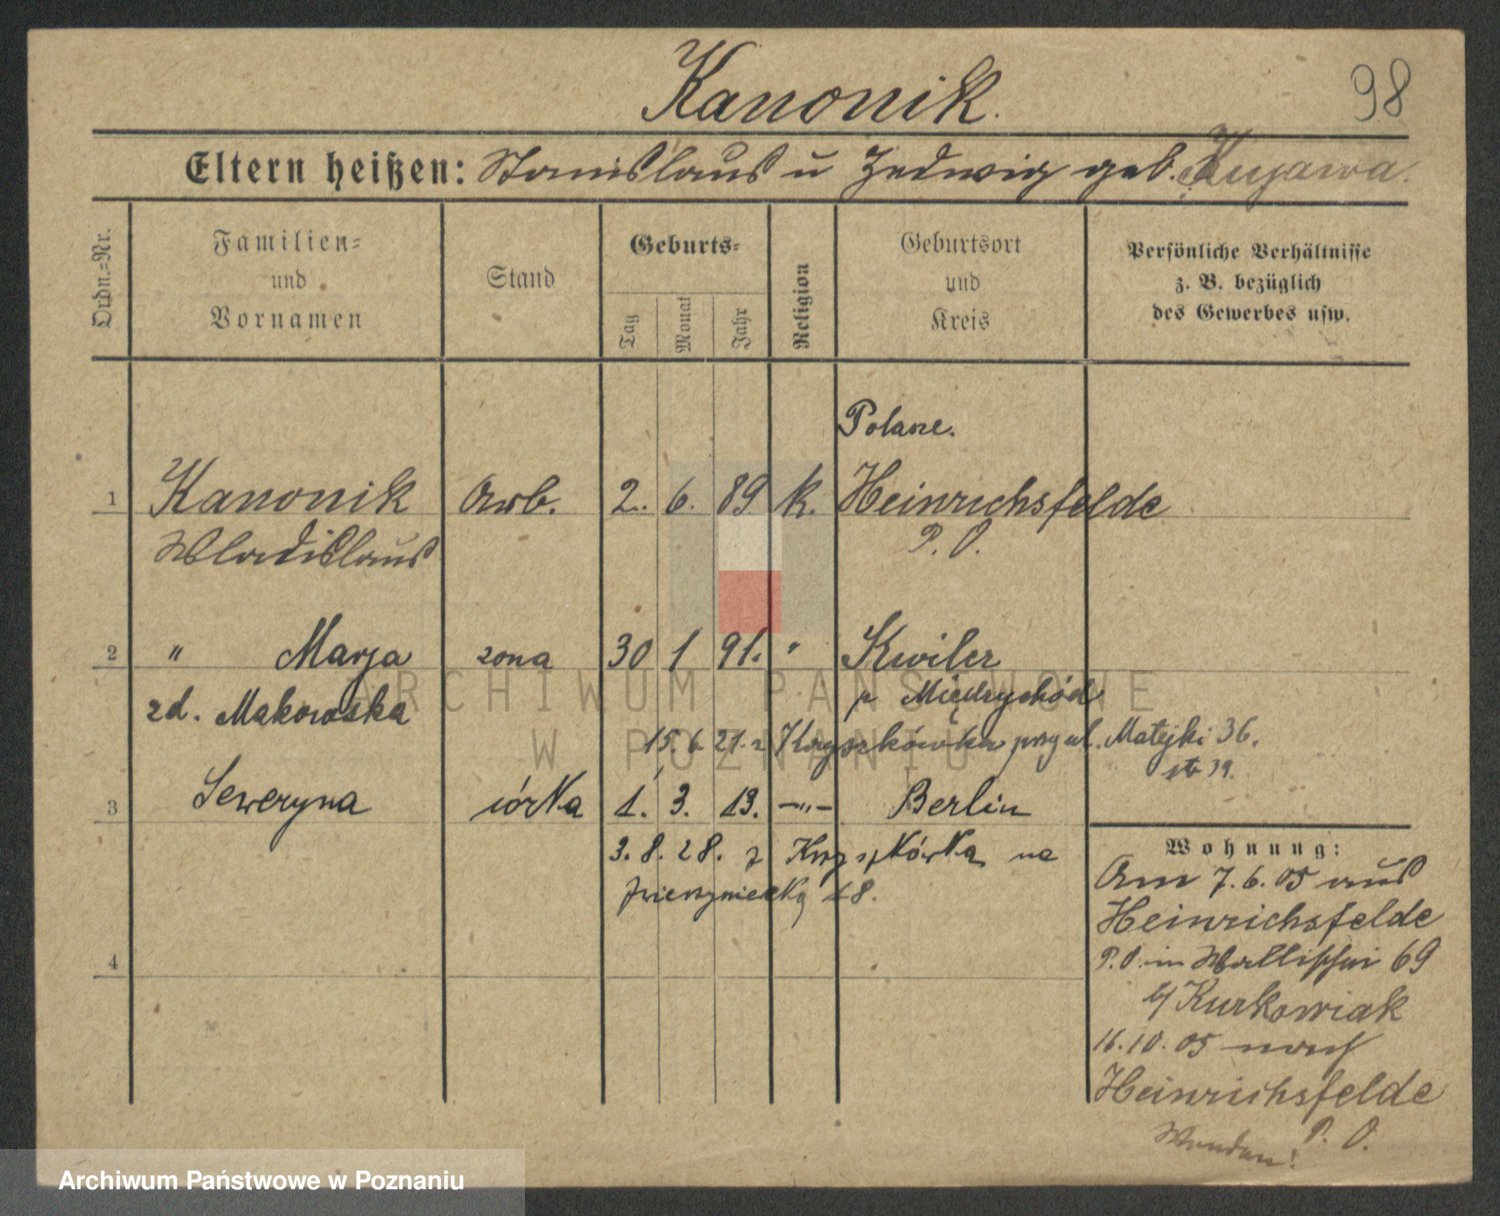 Kanonik.
98
Eltern heißen: Stanislaus u Hedwig geb. Kujawa.
Ordn.=Nr.
Familien=
und
Vornamen
Stand
Geburts=
Tag
Monat
Jahr
Religion
Geburtsort
und
Kreis
Persönliche Verhältnisse
z. B. bezüglich
des Gewerbes usw.
Polane.
1 Kanonik Arb. 2. 6. 89 k. Heinrichsfelde
Wladislaus P. O.
2 " Marja zona 30 1 91. " Kwilcz
zd. Makowska p Międzychód
15. 6 21. z Krzyżkówka przy ul. Matejki 36.
19.
3 Seweryna córka 1. 3. 13. —"— Berlin
3. 8. 28. z na
Zwierzyniecką 18.
4
Wohnung:
Am 7. 6. 05 aus
Heinrichsfelde
P. O. in Wallischei 69
b/ Kurkowiak
16. 10. 05 nach
Heinrichsfelde
P. O.
Wenden!
ARCHIWUM PAŃSTWOWE
W POZNANIU
Archiwum Państwowe w Poznaniu